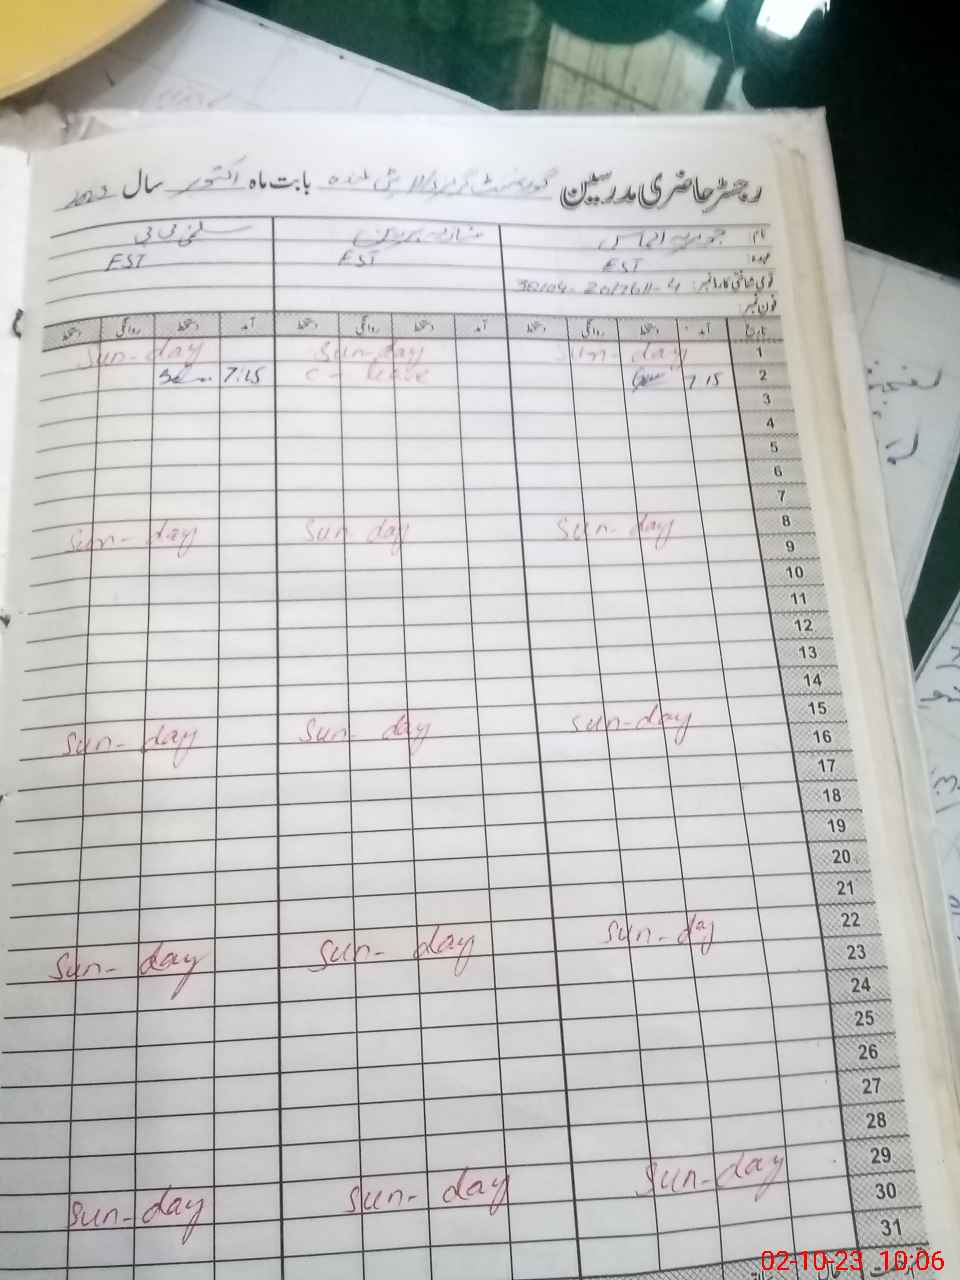 رجسٹر حاضری مدرسین گورنمنٹ گرلز بابت ماہ اکتوبر سال
نام: جویریہ الماس شازیہ پروین سلمٰی بی بی
عہدہ: EST EST EST
قومی شناختی کارڈ نمبر:
فون نمبر:
تاریخ آمد دستخط روانگی دستخط آمد دستخط روانگی دستخط آمد دستخط روانگی دستخط
1 Sun-day Sun-day Sun-day
2 7:15 C-leave 7:15
3
4
5
6
7
8 Sun-day Sun-day Sun-day
9
10
11
12
13
14
15 Sun-day Sun-day Sun-day
16
17
18
19
20
21
22 Sun-day Sun-day Sun-day
23
24
25
26
27
28
29 Sun-day Sun-day Sun-day
30
31
02-10-23 10:06